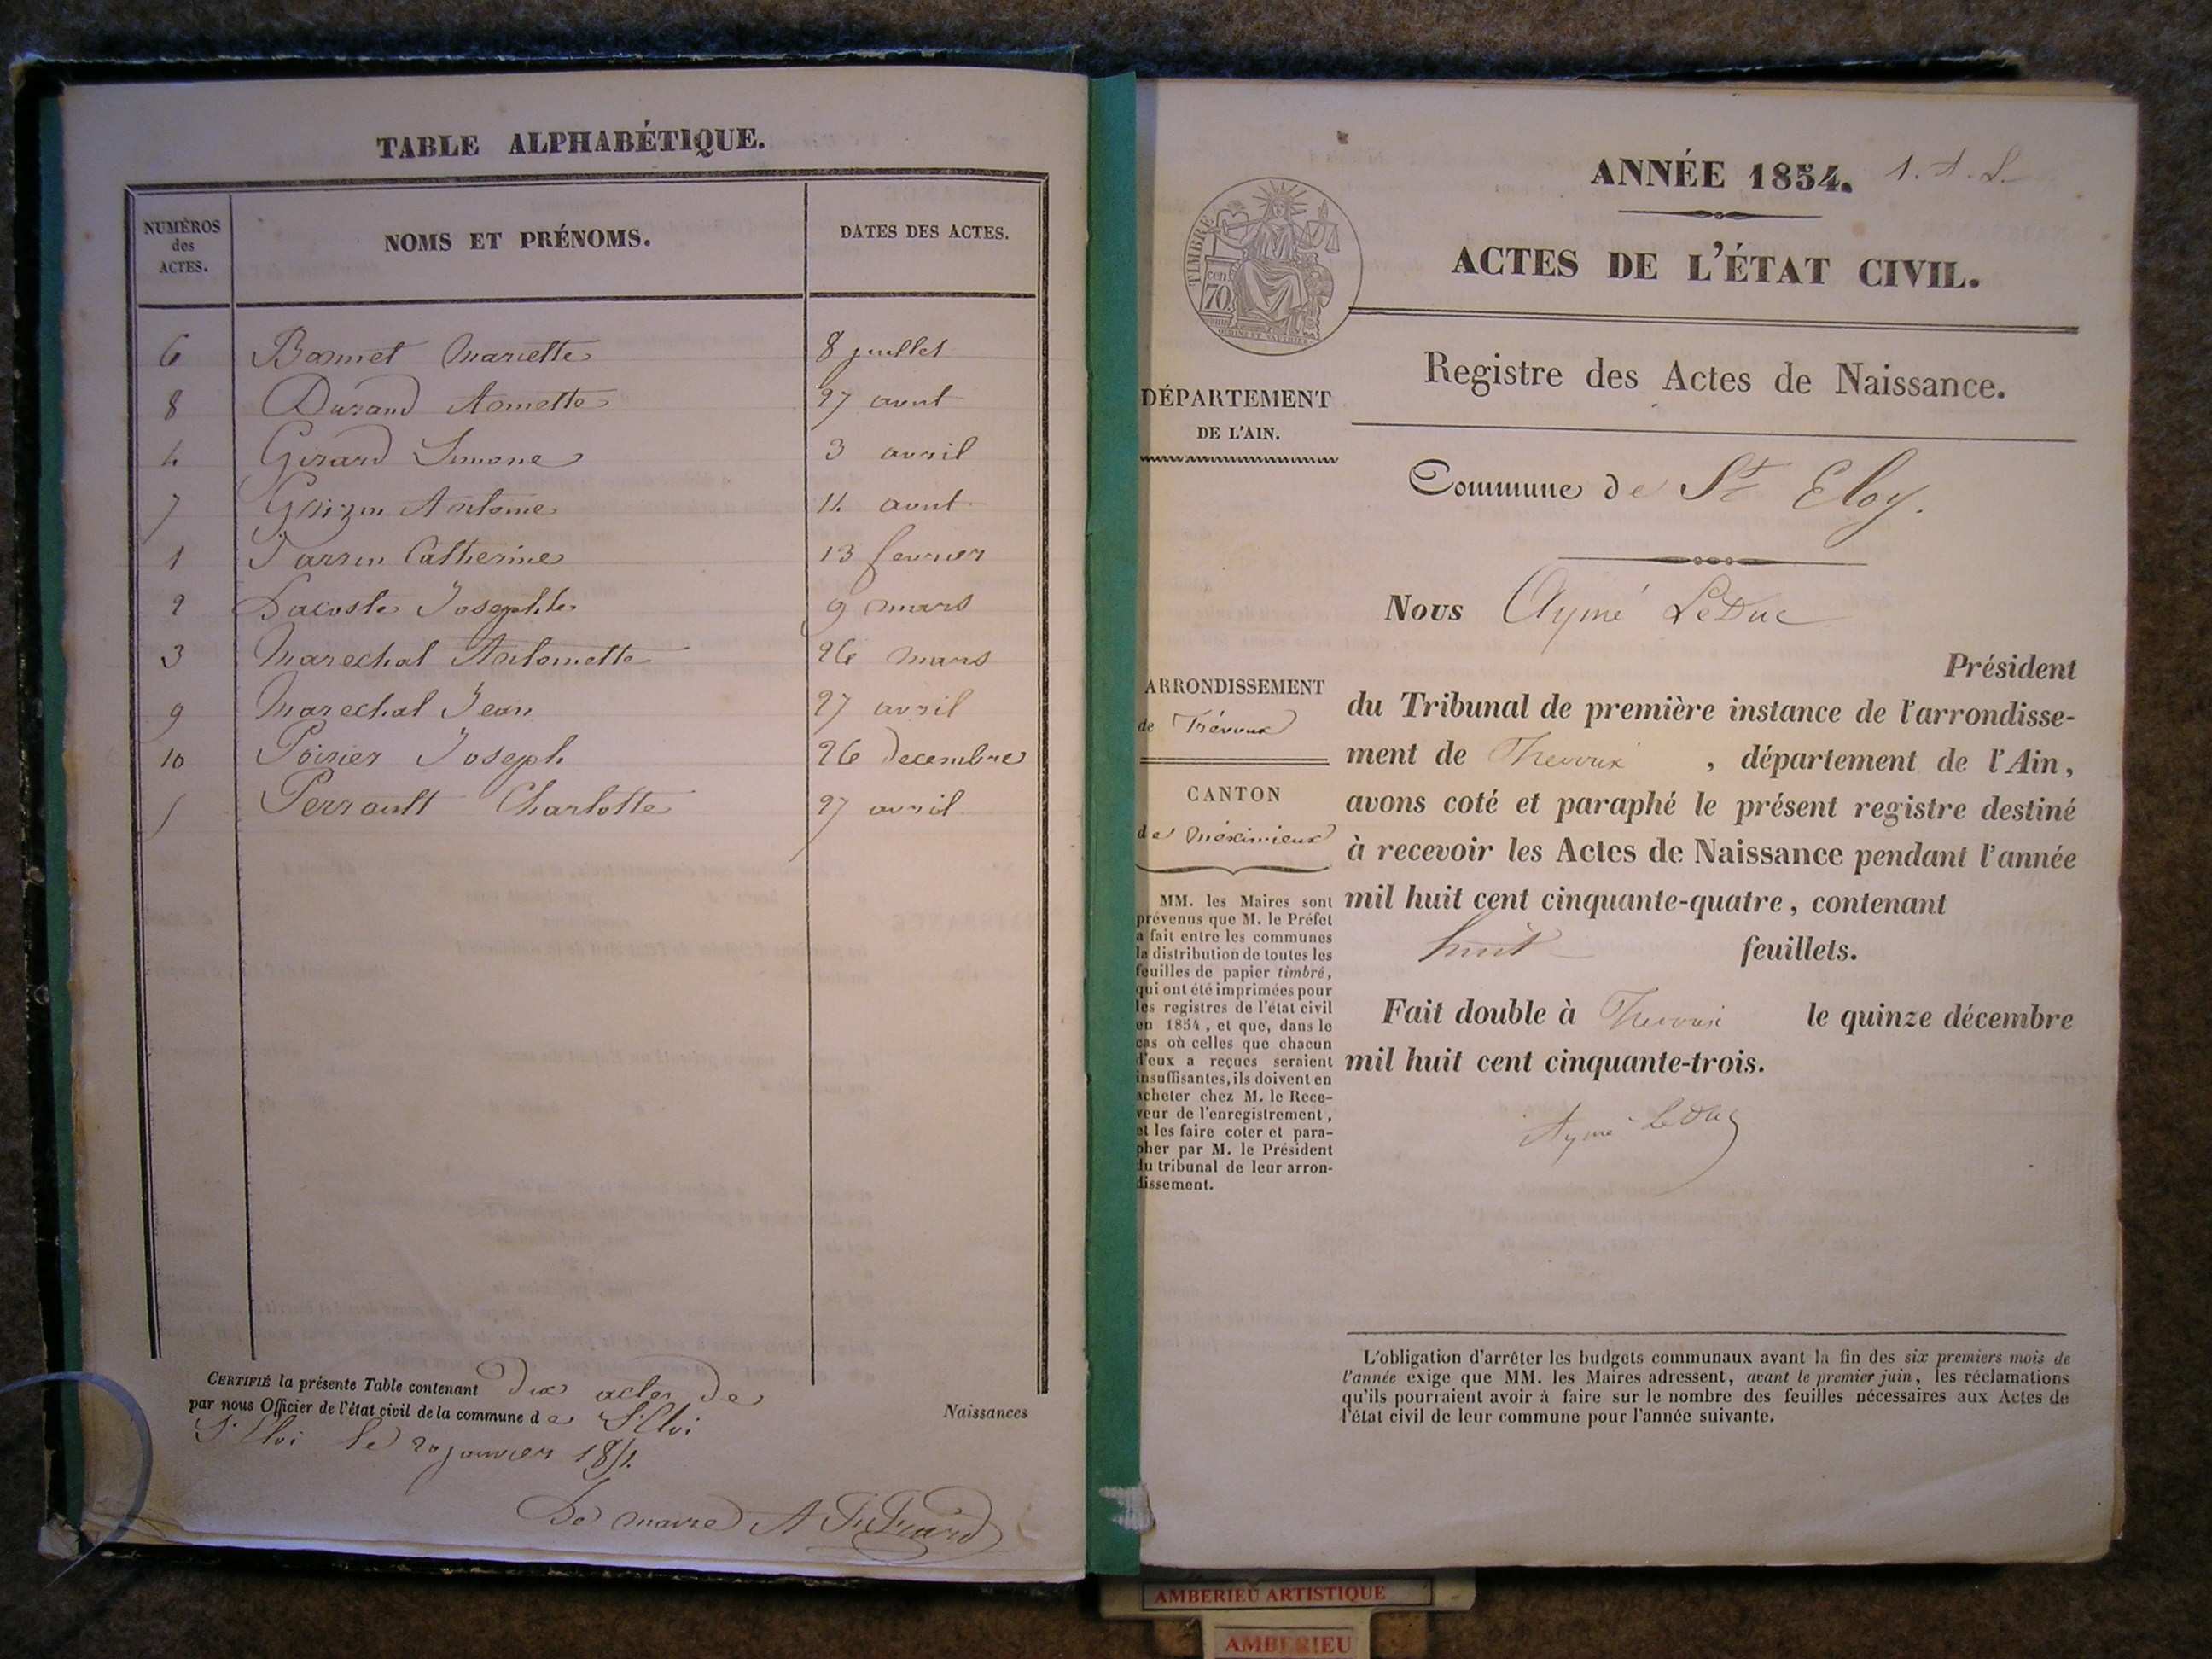 TABLE ALPHABÉTIQUE.
NUMÉROS des ACTES.
NOMS ET PRÉNOMS.
DATES DES ACTES.
6 Bonnet Mariette 8 juillet
8 Durand 27 aout
4 Girard Simone 3 avril
7 Antoine 11 aout
1 Jarrin Catherine 13 fevrier
2 Lacoste Josephte 9 mars
3 Marechal Antoinette 26 mars
9 Marechal Jean 27 avril
10 Poirier Joseph 26 decembre
5 Perrault Charlotte 27 avril
CERTIFIÉ la présente Table contenant dix actes de Naissances
par nous Officier de l'état civil de la commune de St Eloi
St Eloi le 20 janvier
Le maire A
ANNÉE 1854.
ACTES DE L'ÉTAT CIVIL.
TIMBRE
70 cen
Registre des Actes de Naissance.
DÉPARTEMENT
DE L'AIN.
Commune de St Eloy.
Nous Aymé LeDuc
Président
du Tribunal de première instance de l'arrondisse-
ment de Trevoux , département de l'Ain,
avons coté et paraphé le présent registre destiné
à recevoir les Actes de Naissance pendant l'année
mil huit cent cinquante-quatre, contenant
huit feuillets.
Fait double à Trevoux le quinze décembre
mil huit cent cinquante-trois.
Aymé LeDuc
ARRONDISSEMENT
de Trévoux
CANTON
de Méximieux
MM. les Maires sont
prévenus que M. le Préfet
a fait entre les communes
la distribution de toutes les
feuilles de papier timbré,
qui ont été imprimées pour
les registres de l'état civil
en 1854, et que, dans le
cas où celles que chacun
d'eux a reçues seraient
insuffisantes, ils doivent en
acheter chez M. le Rece-
veur de l'enregistrement,
et les faire coter et para-
pher par M. le Président
du tribunal de leur arron-
dissement.
L'obligation d'arrêter les budgets communaux avant la fin des six premiers mois de
l'année exige que MM. les Maires adressent, avant le premier juin, les réclamations
qu'ils pourraient avoir à faire sur le nombre des feuilles nécessaires aux Actes de
l'état civil de leur commune pour l'année suivante.
AMBERIEU ARTISTIQUE
AMBERIEU